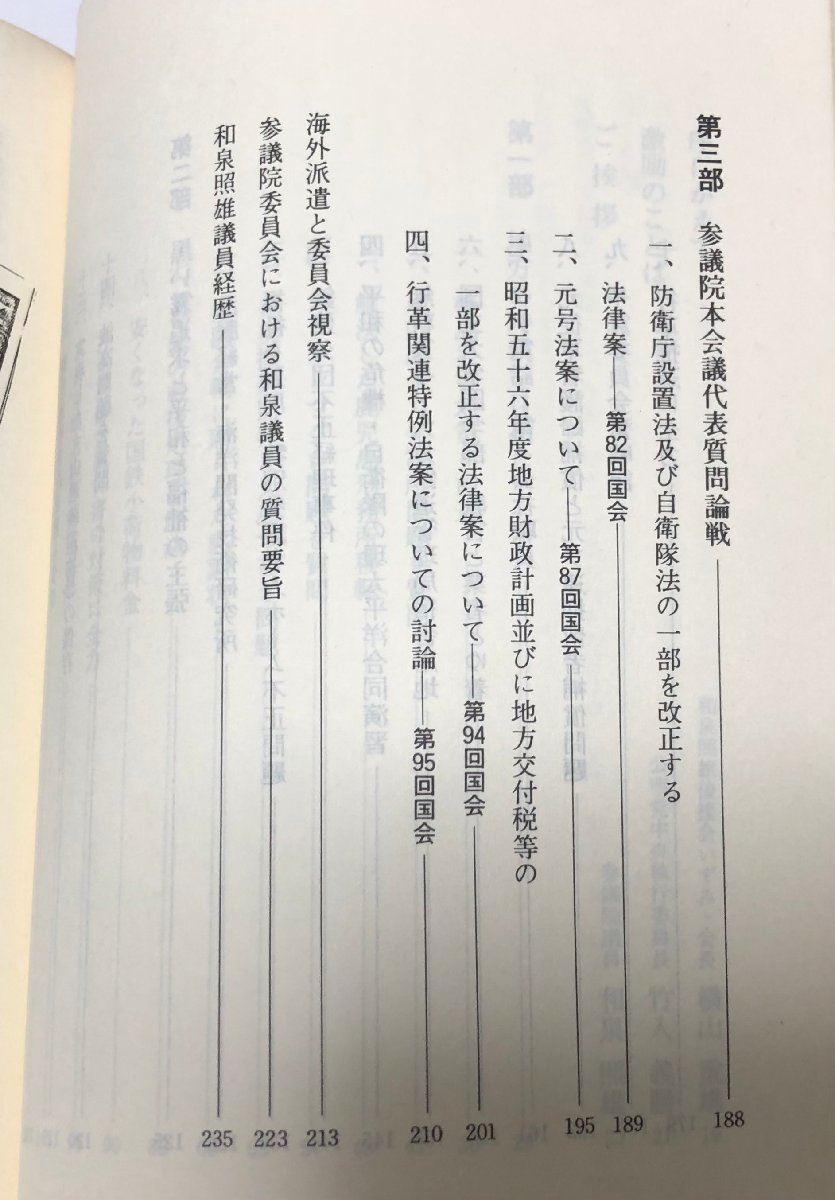 第三部 参議院本会議代表質問論戦 188
一、防衛庁設置法及び自衛隊法の一部を改正する
法律案 第82回国会 189
二、元号法案について 第87回国会 195
三、昭和五十六年度地方財政計画並びに地方交付税等の
一部を改正する法律案について 第94回国会 201
四、行革関連特例法案についての討論 第95回国会 210
海外派遣と委員会視察 213
参議院委員会における和泉議員の質問要旨 223
和泉照雄議員経歴 235